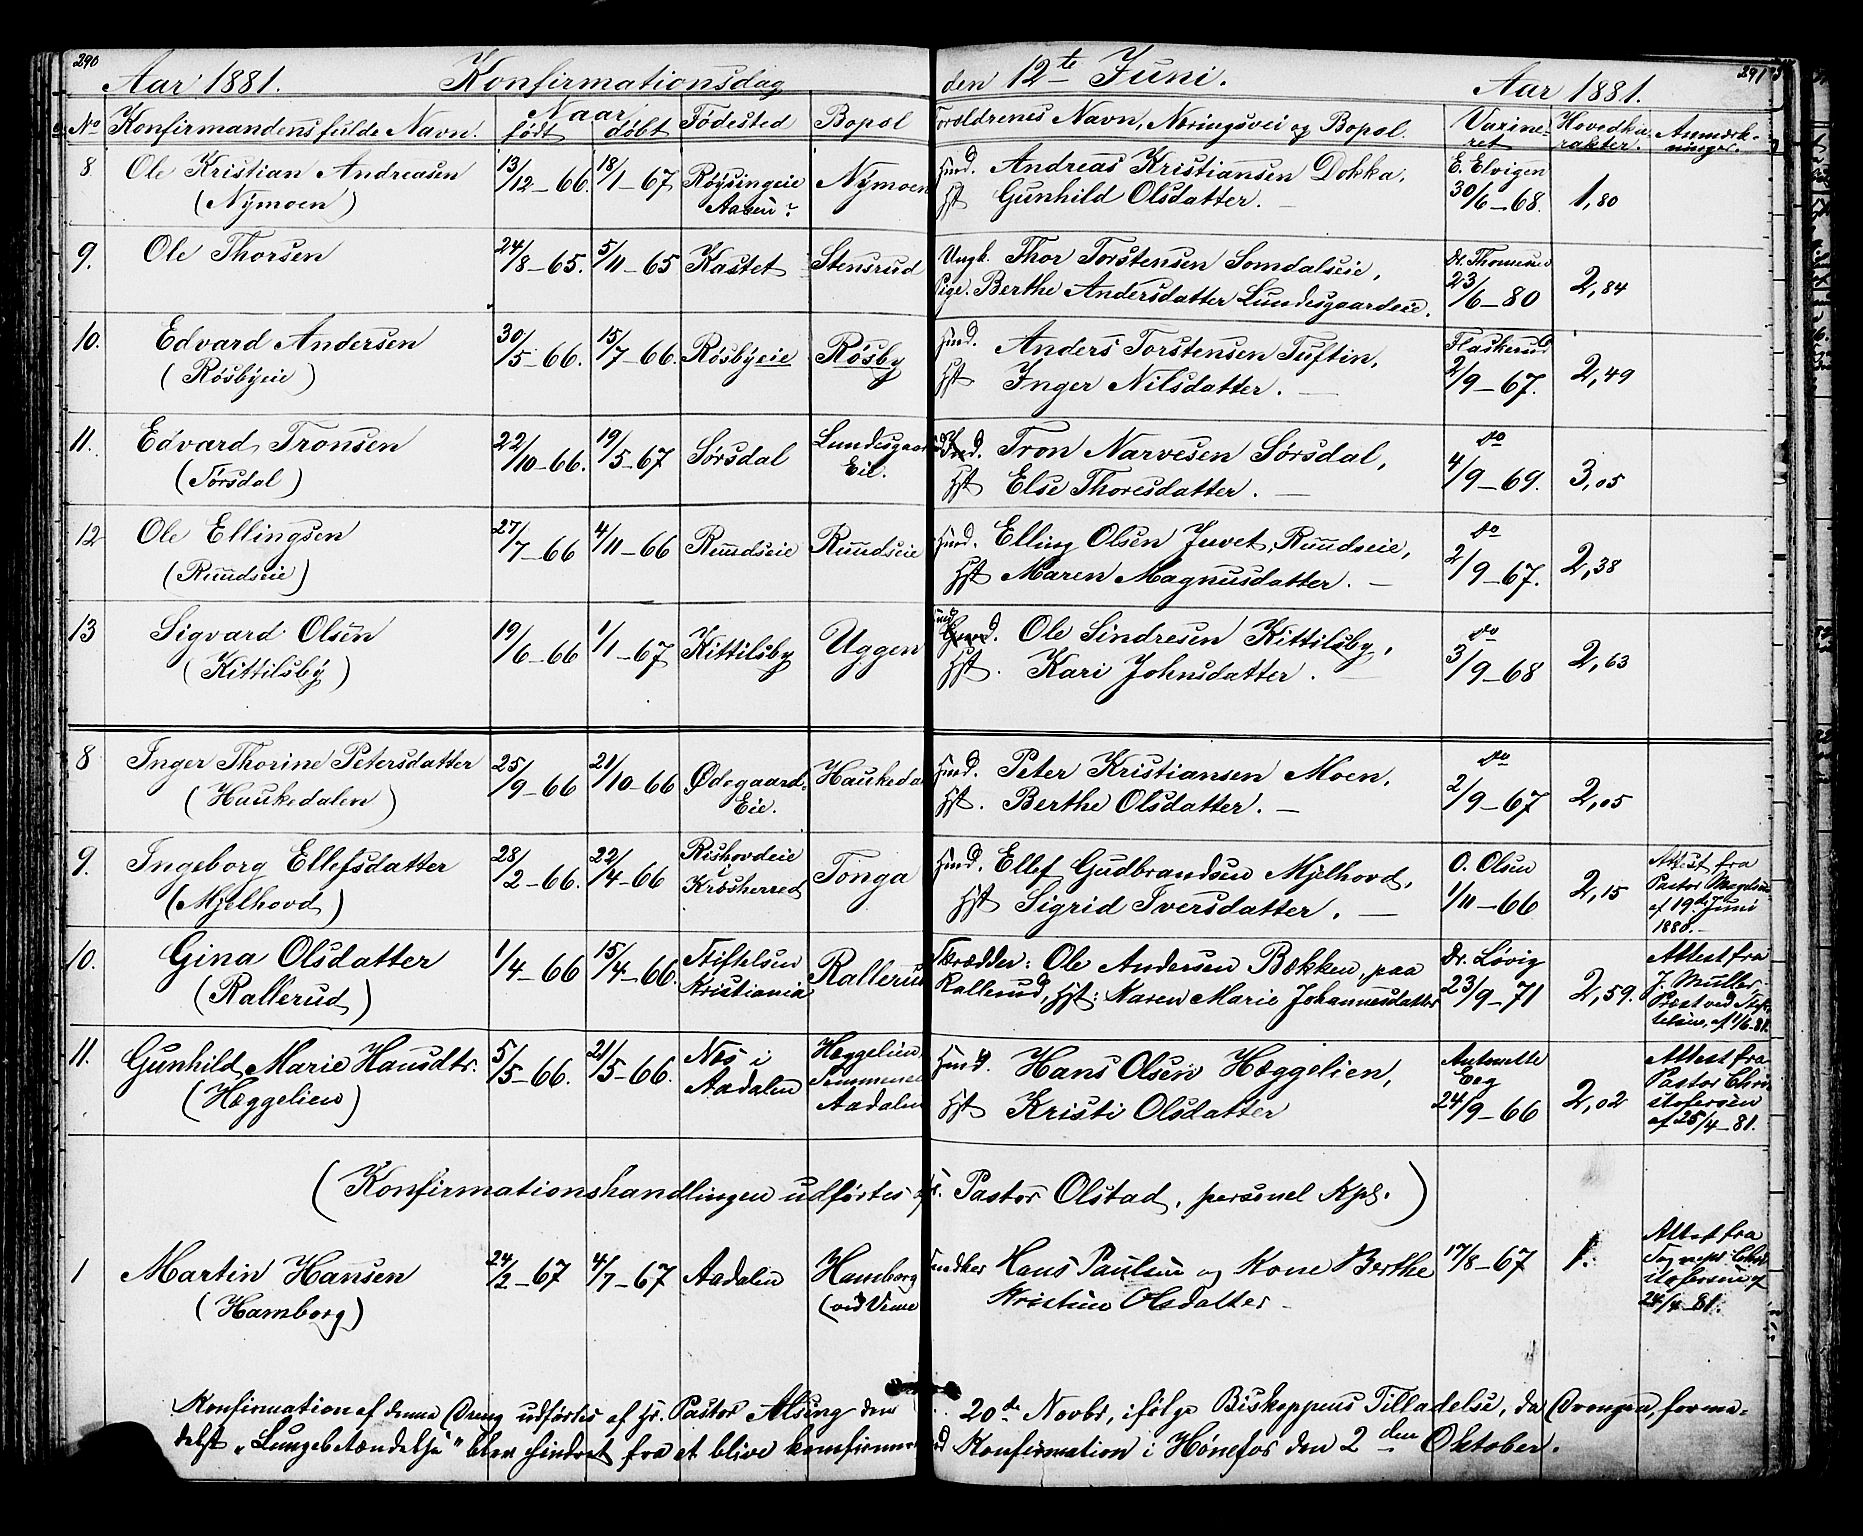 290
Aar 1881. Konfirmationsdag den 12te Juni. Aar 1881. 291
No Konfirmandens fulde Navn. Naar født døbt Fødested Bopæl Forældrenes Navn, Næringsvei og Bopæl. Vaxineret Hovedkarakter. Anmærkninger.
8 Ole Kristian Andreasen 13/12–66. 18/1–67 Røysingeie Nymoen Andreas Kristiansen Dokka, E. Elvigen
(Nymoen) Aasen? Gunhild Olsdatter. 30/6–68. 1,80
9. Ole Thorsen 24/8–65. 5/11–65 Kastet Stensrud Ungk. Thor Torstensen Somdalseie, Dr. Thomesen
Pige. Berthe Andersdatter Lundesgaardeie. 23/6–80 2,84
10. Edvard Andersen 30/5–66. 15/7–66. Røsbyeie Røsby Anders Torstensen Tuftin, Flaskerud
(Røsbyeie) Inger Nilsdatter. 2/9–67. 2,49
11. Edvard Tronsen 22/10–66. 19/5–67 Sørsdal Lundesgaard Tron Narvesen Sørsdal, do
(Sørsdal) Eie. Else Thoresdatter. 4/9–69. 3,05
12 Ole Ellingsen 27/7–66 4/11–66 Ruudseie Ruudseie Elling Olsen Juvet, Ruudseie, do
(Ruudseie) Maren Magnusdatter. 2/9–67. 2,38
13 Sigvard Olsen 19/6–66 1/1–67 Kittilsby Uggen Ole Sindresen Kittilsby, do
(Kittilsby) Kari Johnsdatter. 3/9–68 2,63
8 Inger Thorine Petersdatter 25/9–66 21/10–66 Ødegaards Haukedal Peter Kristiansen Moen, do
(Haukedalen) Eie. Berthe Olsdatter. 2/9–67 2,05
9. Ingeborg Ellefsdatter 28/2–66. 22/4–66 Rishovdeie Tonga Ellef Gudbrandsen Mjelhovd, O. Olsen Attest fra
(Mjelhovd) Krødsherred Sigrid Iversdatter. 1/11–66 2,15 Pastor
af 19de Juni
1880.
10. Gina Olsdatter 1/4–66 15/4–66. Stiftelsen Rallerud Ole Andersen Bækken, paa Dr. Løvig Attest fra
(Rallerud) Kristiania Rallerud, Hst: Maren Marie Johannesdatter 23/9–71 2,59. J. Müller
Præst ved Stiftelsen, af 1/6–81.
11. Gunhild Marie Hansdtr. 5/5–66. 21/5–66. Næs i Hæggelien Hans Olsen Hæggelien, Antonette Attest fra
(Hæggelien) Aadalen Aadalen Kristi Olsdatter Eeg 24/9–66 2,02 Pastor Christofersen
af 25/4–81.
(Konfirmationshandlingen udførtes af Hr. Pastor Olstad, personel Kpl.)
1 Martin Hansen 24/2–67 4/7–67 Aadalen Hamborg Hans Paulsen og Kone Berthe 17/8–67 1. Attest fra
(Hamborg) (ved Veme Kristine Olsdatter Sognepr. Christofersen af
24/4–81.
Konfirmation af denne Dreng udførtes af Hr. Pastor Alsing den 20de Novbr, ifølge Biskoppens Tilladelse, da Drengen, forme-
delst „Lungebetændelse" blev hindret fra at blive konfirmeret ved Konfirmation i Hønefos den 2den Oktober.